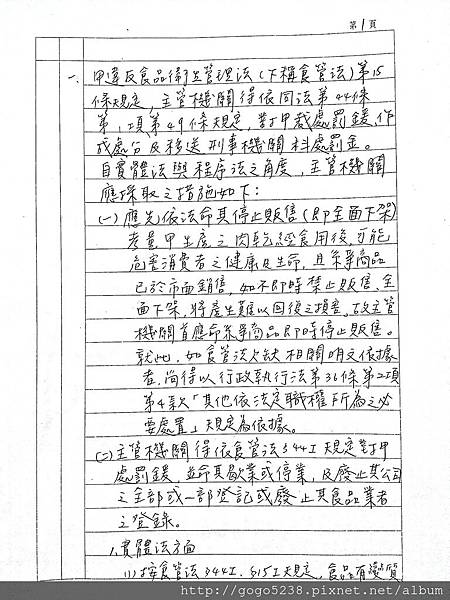 第1頁
一、
甲違反食品衛生管理法(下稱食管法)第15
條規定，主管機關得依同法第44條
第1項第49條規定，對甲裁處罰鍰作
成處分及移送刑事機關科處罰金。
自實體法與程序法之角度，主管機關
應採取之措施如下：
(一)應先依法命其停止販售(即全面下架)
考量甲生產之肉乾經食用後，可能
危害消費者之健康及生命，且系爭商品
已於市面銷售，如不即時禁止販售、全
面下架，將產生難以回復之損害，故主管
機關首應命系爭商品即時停止販售。
就此，如食管法欠缺相關明文依據
者，尚得以行政執行法第36條第2項
第4款「其他依法定職權所為之必
要處置」規定為依據。
(二)主管機關得依食管法§44I規定對甲
處罰鍰，並命其歇業或停業，及廢止其公司
之全部或一部登記或廢止其食品業者
之登錄。
1.實體法方面
(1)按食管法§44I、§15I規定，食品有變質
http://gogo5238.pixnet.net/blog